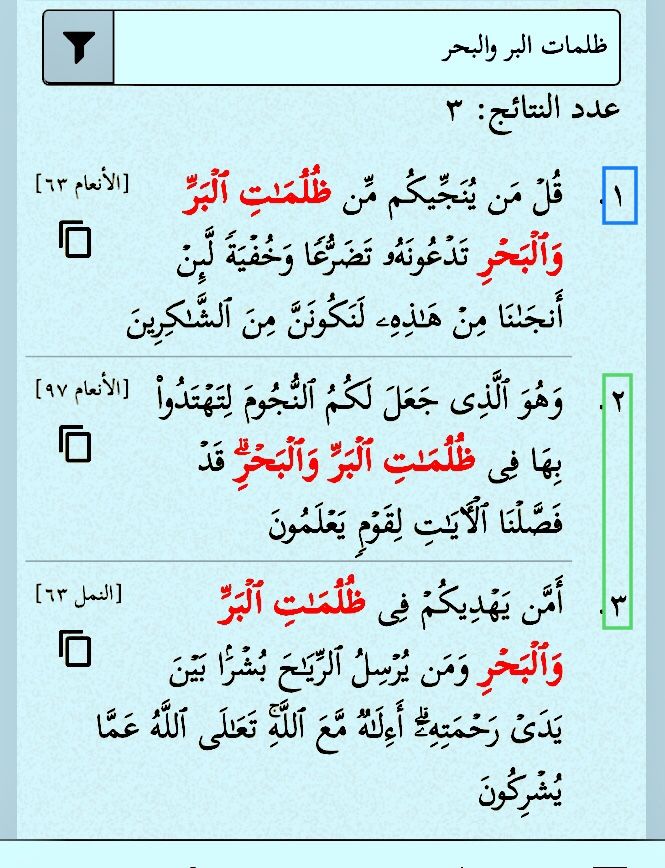 ظلمات البر والبحر
عدد النتائج: ٣
١. قُلْ مَن يُنَجِّيكُم مِّن ظُلُمَـٰتِ ٱلْبَرِّ [الأنعام ٦٣]
وَٱلْبَحْرِ تَدْعُونَهُۥ تَضَرُّعًا وَخُفْيَةً لَّئِنْ
أَنجَىٰنَا مِنْ هَـٰذِهِۦ لَنَكُونَنَّ مِنَ ٱلشَّـٰكِرِينَ
٢. وَهُوَ ٱلَّذِى جَعَلَ لَكُمُ ٱلنُّجُومَ لِتَهْتَدُوا۟ [الأنعام ٩٧]
بِهَا فِى ظُلُمَـٰتِ ٱلْبَرِّ وَٱلْبَحْرِ ۗ قَدْ
فَصَّلْنَا ٱلْـَٔايَـٰتِ لِقَوْمٍ يَعْلَمُونَ
٣. أَمَّن يَهْدِيكُمْ فِى ظُلُمَـٰتِ ٱلْبَرِّ [النمل ٦٣]
وَٱلْبَحْرِ وَمَن يُرْسِلُ ٱلرِّيَـٰحَ بُشْرًۢا بَيْنَ
يَدَىْ رَحْمَتِهِۦٓ ۗ أَءِلَـٰهٌ مَّعَ ٱللَّهِ ۚ تَعَـٰلَى ٱللَّهُ عَمَّا
يُشْرِكُونَ